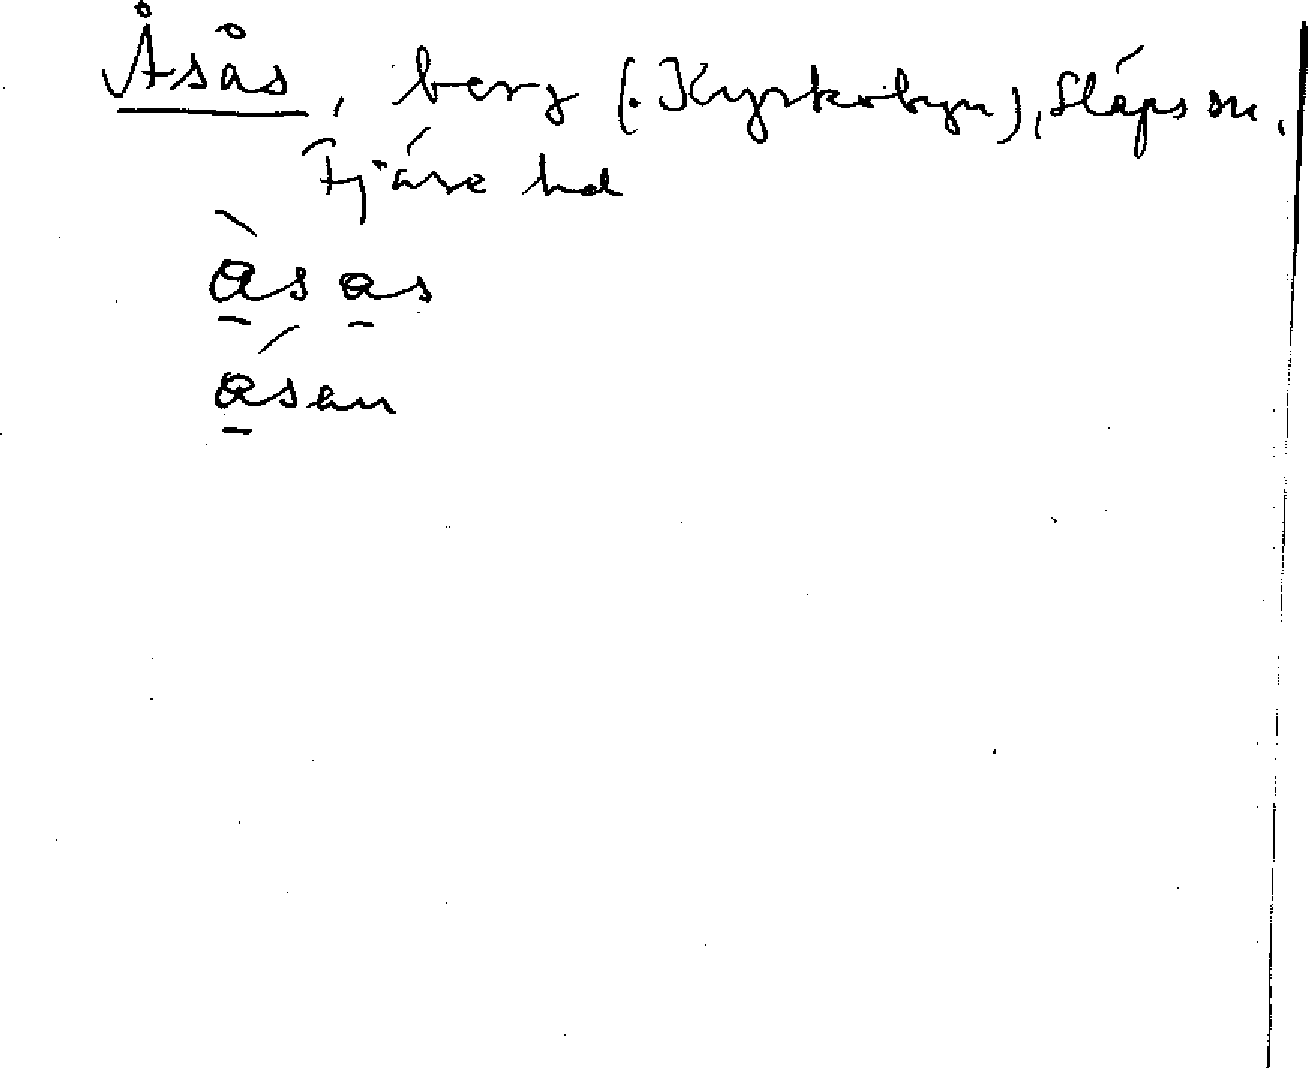 Åsås, berg (. Kyrkobyn), Släps sn,
Fjäre hd
åsås
åsen